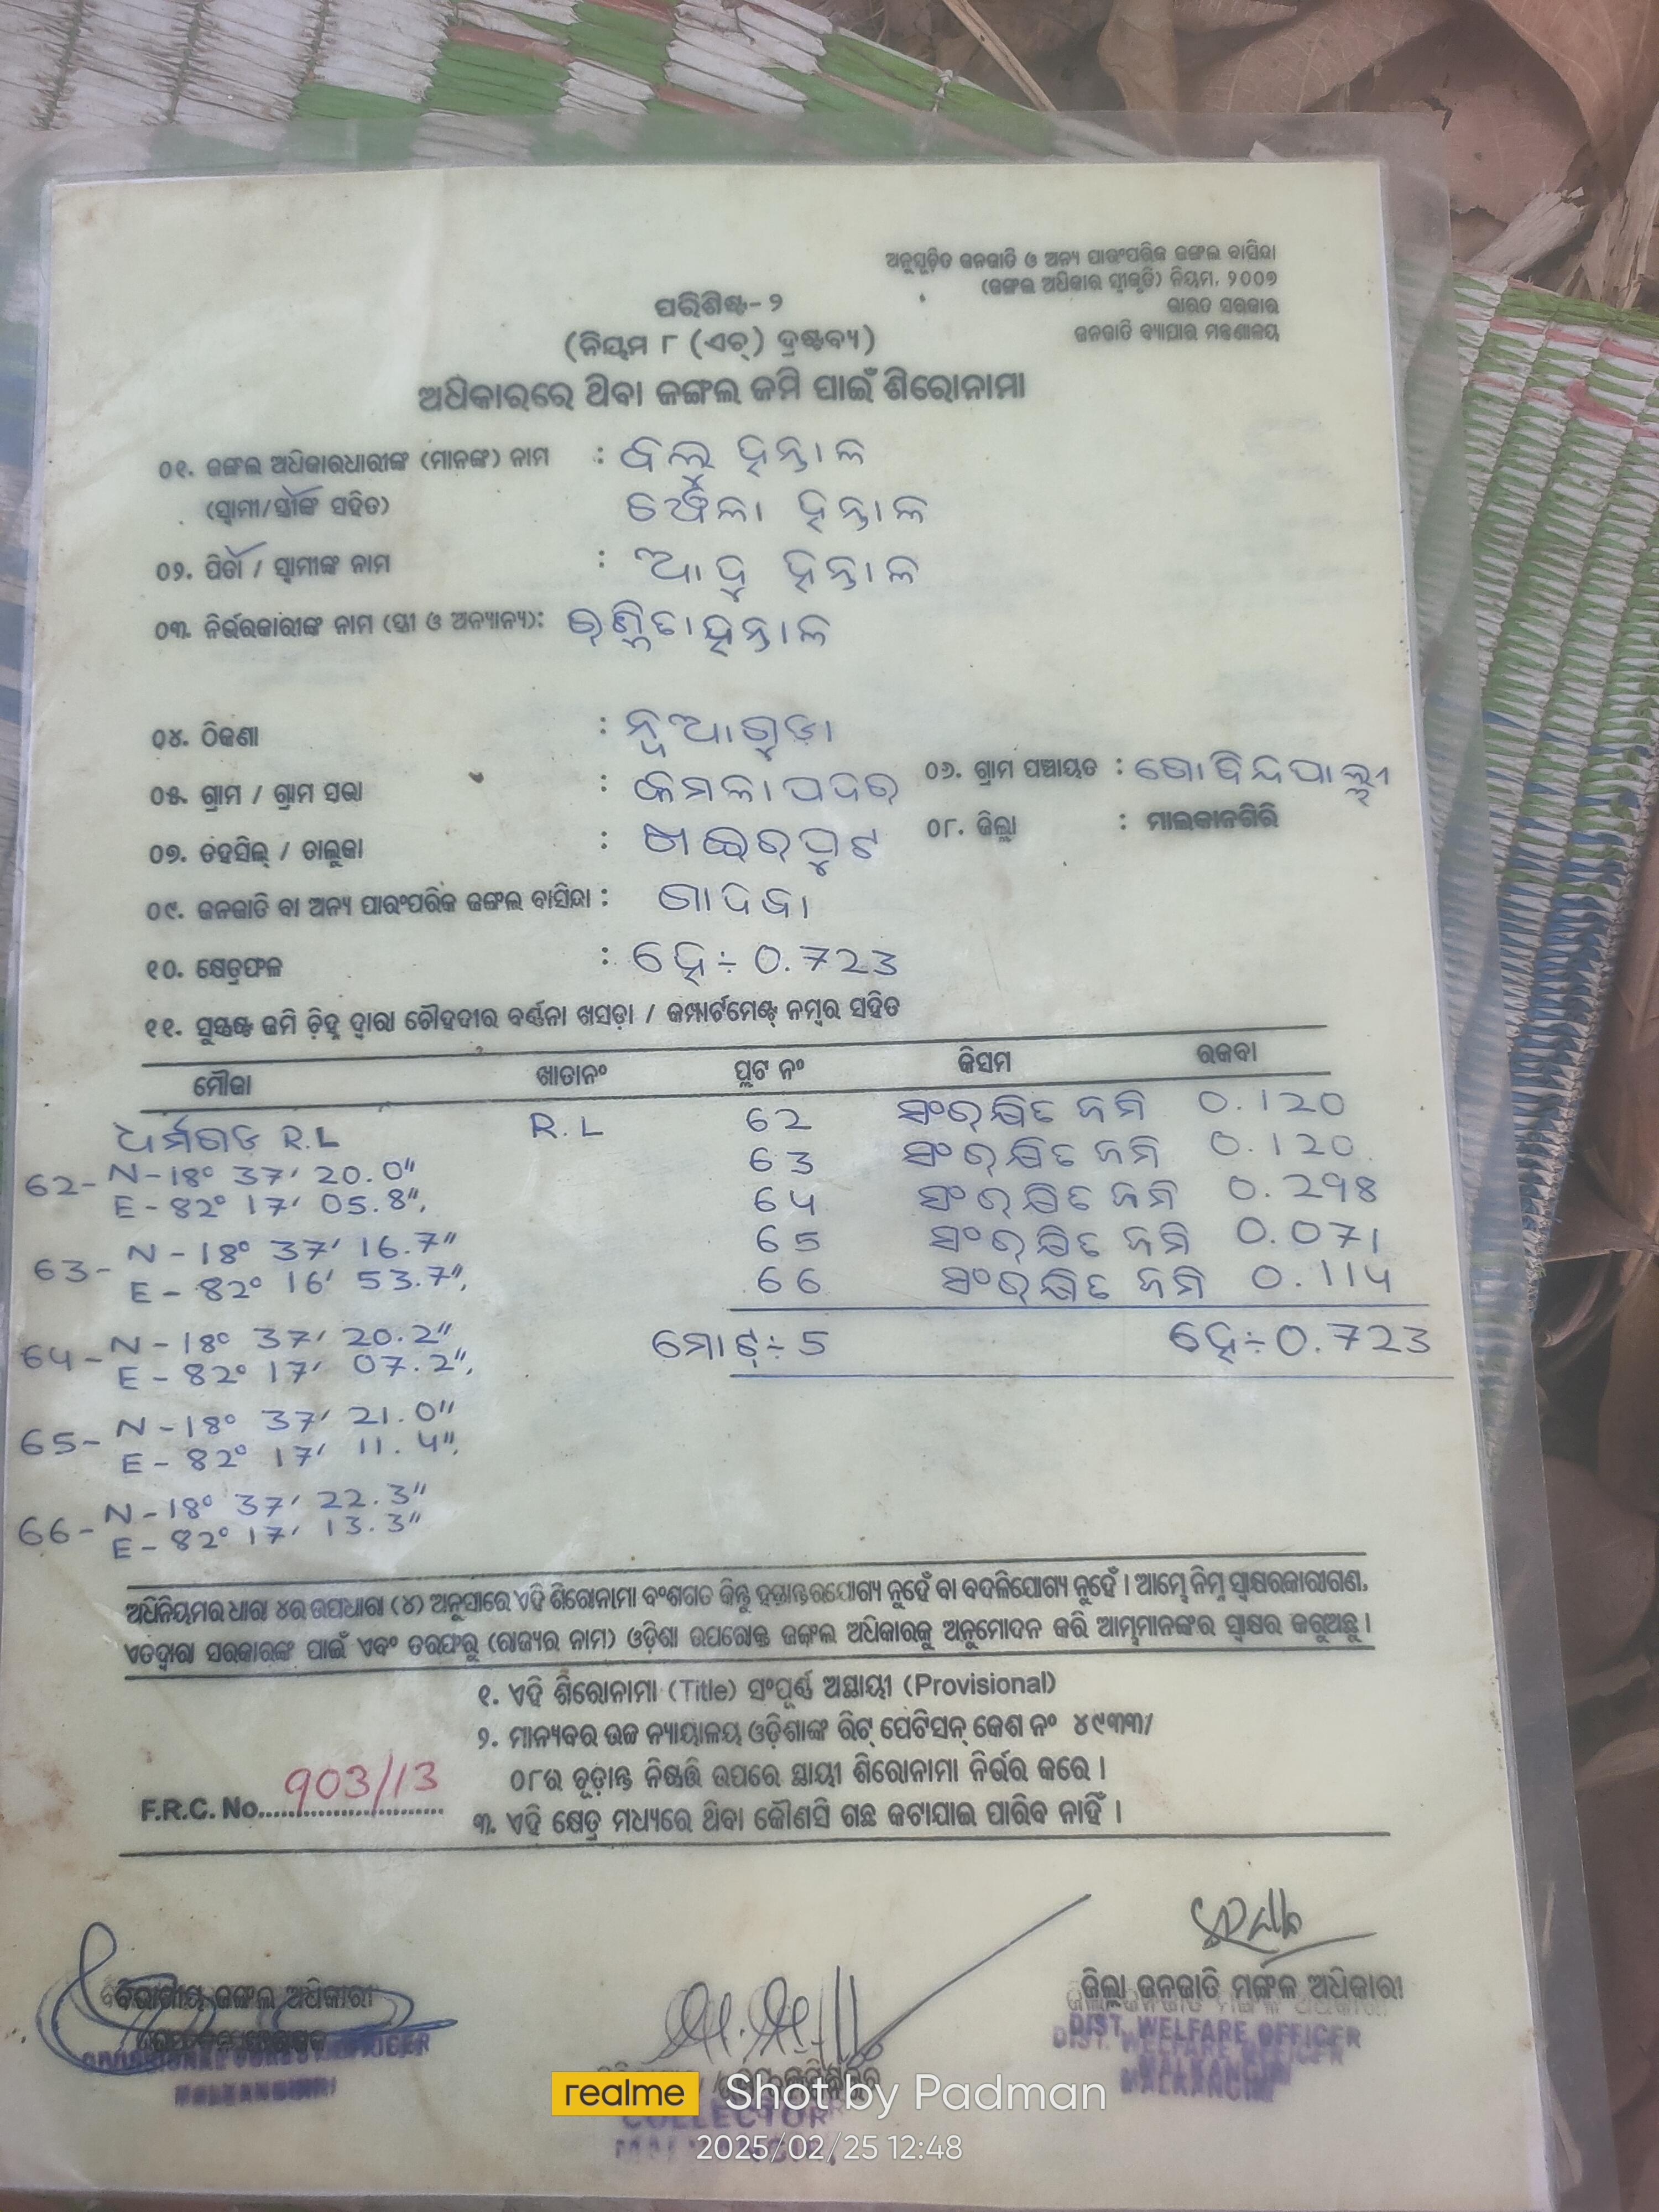 ଅନୁସୂଚିତ ଜନଜାତି ଓ ଅନ୍ୟ ପାରଂପରିକ ଜଙ୍ଗଲ ବାସିନ୍ଦା
(ଜଙ୍ଗଲ ଅଧିକାର ସ୍ୱୀକୃତି) ନିୟମ, ୨୦୦୭
ଭାରତ ସରକାର
ଜନଜାତି ବ୍ୟାପାର ମନ୍ତ୍ରଣାଳୟ
ପରିଶିଷ୍ଟ- ୨
(ନିୟମ ୮ (ଏଚ୍) ଦ୍ରଷ୍ଟବ୍ୟ)
ଅଧିକାରରେ ଥିବା ଜଙ୍ଗଲ ଜମି ପାଇଁ ଶିରୋନାମା
୦୧. ଜଙ୍ଗଲ ଅଧିକାରଧାରୀଙ୍କ (ମାନଙ୍କ) ନାମ : ବଲ୍ଲୁ ହନ୍ତାଳ
(ସ୍ୱାମୀ/ସ୍ତ୍ରୀଙ୍କ ସହିତ) ହନ୍ତାଳ
୦୨. ପିତା / ସ୍ୱାମୀଙ୍କ ନାମ : ଆଦୁ ହନ୍ତାଳ
୦୩. ନିର୍ଭରକାରୀଙ୍କ ନାମ (ସ୍ତ୍ରୀ ଓ ଅନ୍ୟାନ୍ୟ): ହନ୍ତାଳ
୦୪. ଠିକଣା : ନୂଆଗୁଡା
୦୫. ଗ୍ରାମ / ଗ୍ରାମ ସଭା : କମଳାପଦର ୦୬. ଗ୍ରାମ ପଞ୍ଚାୟତ : ଗୋବିନ୍ଦପାଲ୍ଲୀ
୦୭. ତହସିଲ୍ / ତାଲୁକା : ଖଇରପୁଟ ୦୮. ଜିଲ୍ଲା : ମାଲକାନଗିରି
୦୯. ଜନଜାତି ବା ଅନ୍ୟ ପାରଂପରିକ ଜଙ୍ଗଲ ବାସିନ୍ଦା : ଗାଦବା
୧୦. କ୍ଷେତ୍ରଫଳ : ହେ÷ 0.723
୧୧. ସୁସ୍ପଷ୍ଟ ଜମି ଚିହ୍ନ ଦ୍ୱାରା ଚୌହଦ୍ଦୀର ବର୍ଣ୍ଣନା ଖସଡ଼ା / କମ୍ପାର୍ଟମେଣ୍ଟ୍ ନମ୍ବର ସହିତ
ମୌଜା ଖାତାନଂ ପ୍ଲଟ ନଂ କିସମ ରକବା
ଧର୍ମଗଡ R.L R.L 62 ସଂରକ୍ଷିତ ଜମି 0.120
63 ସଂରକ୍ଷିତ ଜମି 0.120
64 ସଂରକ୍ଷିତ ଜମି 0.298
65 ସଂରକ୍ଷିତ ଜମି 0.071
66 ସଂରକ୍ଷିତ ଜମି 0.114
ମୋଟ÷ 5 ହେ÷0.723
62- N-18° 37' 20.0"
E-82° 17' 05.8",
63- N-18° 37' 16.7"
E-82° 16' 53.7",
64- N-18° 37' 20.2"
E-82° 17' 07.2",
65- N-18° 37' 21.0"
E-82° 17' 11.4",
66- N-18° 37' 22.3"
E-82° 17' 13.3"
ଅଧିନିୟମର ଧାରା ୪ର ଉପଧାରା (୪) ଅନୁସାରେ ଏହି ଶିରୋନାମା ବଂଶଗତ କିନ୍ତୁ ହସ୍ତାନ୍ତରଯୋଗ୍ୟ ନୁହେଁ ବା ବଦଳିଯୋଗ୍ୟ ନୁହେଁ । ଆମ୍ଭେ ନିମ୍ନ ସ୍ୱାକ୍ଷରକାରୀଗଣ,
ଏତଦ୍ୱାରା ସରକାରଙ୍କ ପାଇଁ ଏବଂ ତରଫରୁ (ରାଜ୍ୟର ନାମ) ଓଡ଼ିଶା ଉପରୋକ୍ତ ଜଙ୍ଗଲ ଅଧିକାରକୁ ଅନୁମୋଦନ କରି ଆମ୍ଭମାନଙ୍କର ସ୍ୱାକ୍ଷର କରୁଅଛୁ ।
୧. ଏହି ଶିରୋନାମା (Title) ସଂପୂର୍ଣ୍ଣ ଅସ୍ଥାୟୀ (Provisional)
୨. ମାନ୍ୟବର ଉଚ୍ଚ ନ୍ୟାୟାଳୟ ଓଡ଼ିଶାଙ୍କ ରିଟ୍ ପେଟିସନ୍ କେଶ ନଂ ୪୯୩୩/
୦୮ର ଚୂଡ଼ାନ୍ତ ନିଷ୍ପତ୍ତି ଉପରେ ସ୍ଥାୟୀ ଶିରୋନାମା ନିର୍ଭର କରେ ।
F.R.C. No. 903/13
୩. ଏହି କ୍ଷେତ୍ର ମଧ୍ୟରେ ଥିବା କୌଣସି ଗଛ କଟାଯାଇ ପାରିବ ନାହିଁ ।
ବିଭାଗୀୟ ଜଙ୍ଗଲ ଅଧିକାରୀ
DIVISIONAL FOREST OFFICER
MALKANGIRI
COLLECTOR
ଜିଲ୍ଲା ଜନଜାତି ମଙ୍ଗଳ ଅଧିକାରୀ
DIST. WELFARE OFFICER
MALKANGIRI
realme Shot by Padman
2025/02/25 12:48